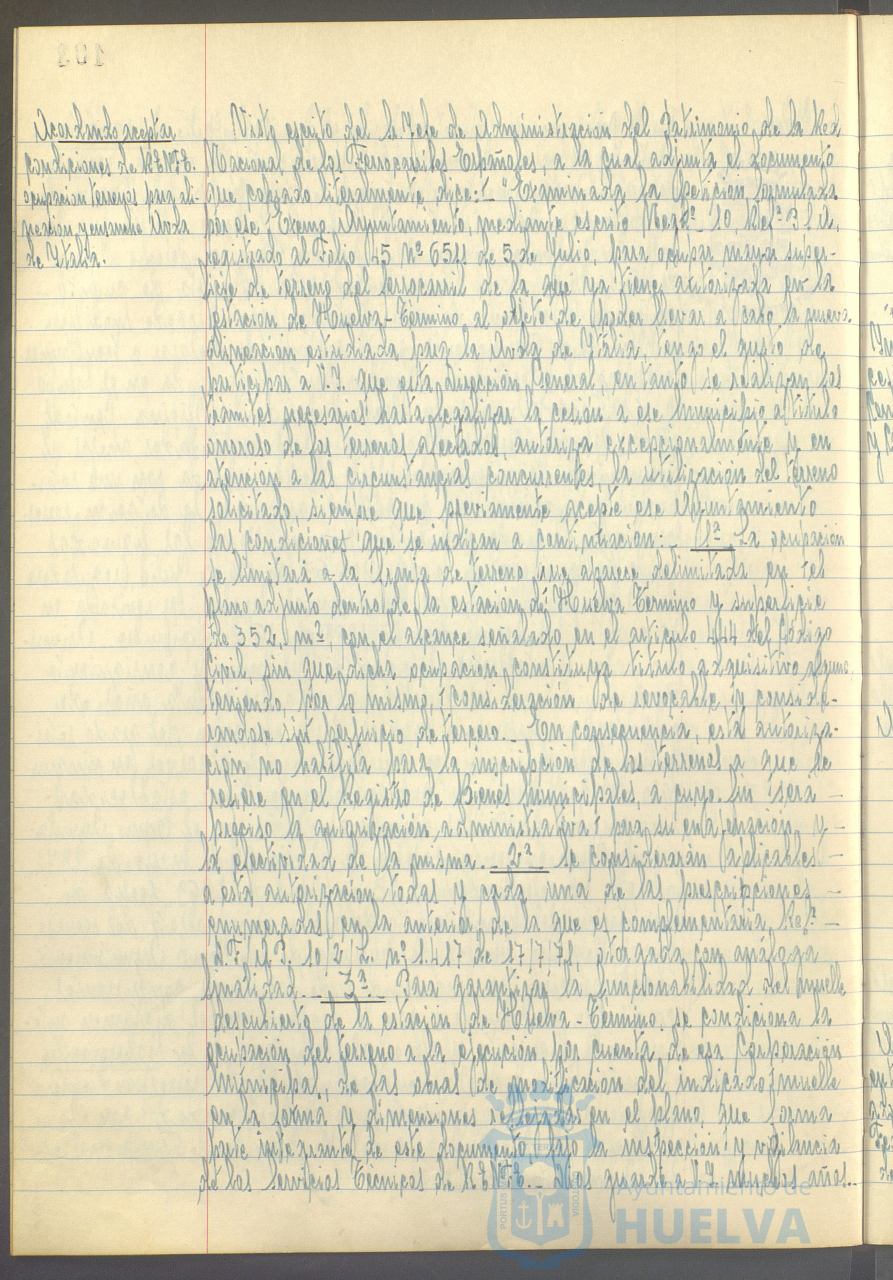 Acordando aceptar
condiciones de RENFE.
ocupación terrenos para ali-
neación y ensanche Avda
de Italia.
Visto escrito del S. Jefe de Administración del Patrimonio de la Red
Nacional de los Ferrocarriles Españoles, a la cual adjunta el documento
que copiado literalmente dice: "Examinada la Petición formulada
por ese Excmo Ayuntamiento, mediante escrito 10
registrado al Folio 45 Nº 6511 de 5 de Julio, para ocupar mayor super-
ficie de terreno del ferrocarril de la que ya tiene autorizada en la
estación de Huelva-Término al objeto de poder llevar a cabo la nueva
alineación estudiada para la Avda de Italia, tengo el gusto de
participar a V.I. que esta Dirección General, en tanto se realizan los
trámites necesarios hasta legalizar la cesión a ese municipio a título
oneroso de los terrenos afectados, autoriza excepcionalmente y en
atención a las circunstancias concurrentes, la utilización del terreno
solicitado, siempre que previamente acepte ese Ayuntamiento
las condiciones que se indican a continuación: 1ª La ocupación
se limitará a la franja de terreno que aparece delimitada en el
plano adjunto dentro de la estación de Huelva Término y superficie
de 352, m², con el alcance señalado en el artículo 444 del Código
Civil, sin que dicha ocupación constituya título adquisitivo alguno
teniendo, por lo mismo, consideración de revocable, y conside-
randose sin perjuicio de tercero.- En consecuencia, esta autoriza-
ción no habilita para la inscripción de los terrenos a que se
refiere en el Registro de Bienes Municipales, a cuyo fin será -
preciso la autorización administrativa para su enajenación y -
la efectividad de la misma.- 2ª Se considerarán aplicables -
a esta autorización todas y cada una de las prescripciones -
enumeradas en la anterior, de la que es complementaria, Refª -
10/2/L. nº 1.417 de 17/7/71, otorgada con análoga
finalidad.- 3ª.- Para garantizar la funcionabilidad del muelle
descubierto de la estación de Huelva-Término, se condiciona la
ocupación del terreno a la ejecución, por cuenta de esa Corporación
Municipal, de las obras de modificación del indicado muelle
en la forma y dimensiones en el plano, que forma
parte integrante de este documento, bajo la inspección y vigilancia
de los Servicios Técnicos de RENFE.- Dios guarde a V.I. muchos años.-
Ayuntamiento de
HUELVA
PORTUS
CUSTODIA